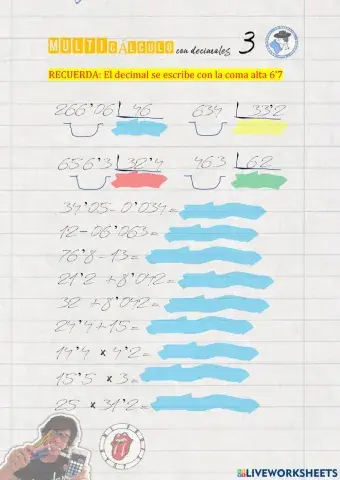 MULTICÁLCULO con decimales 3
RECUERDA: El decimal se escribe con la coma alta 6'7
266'06 46 634 33'2
656'3 32'4 463 62
34'05 - 0'034=
12 - 06'063=
76'8 - 13=
21'2 + 8'012=
32 + 8'012=
24'4 + 15=
14'4 × 4'2=
15'5 × 3=
25 × 31'2=
LIVEWORKSHEETS